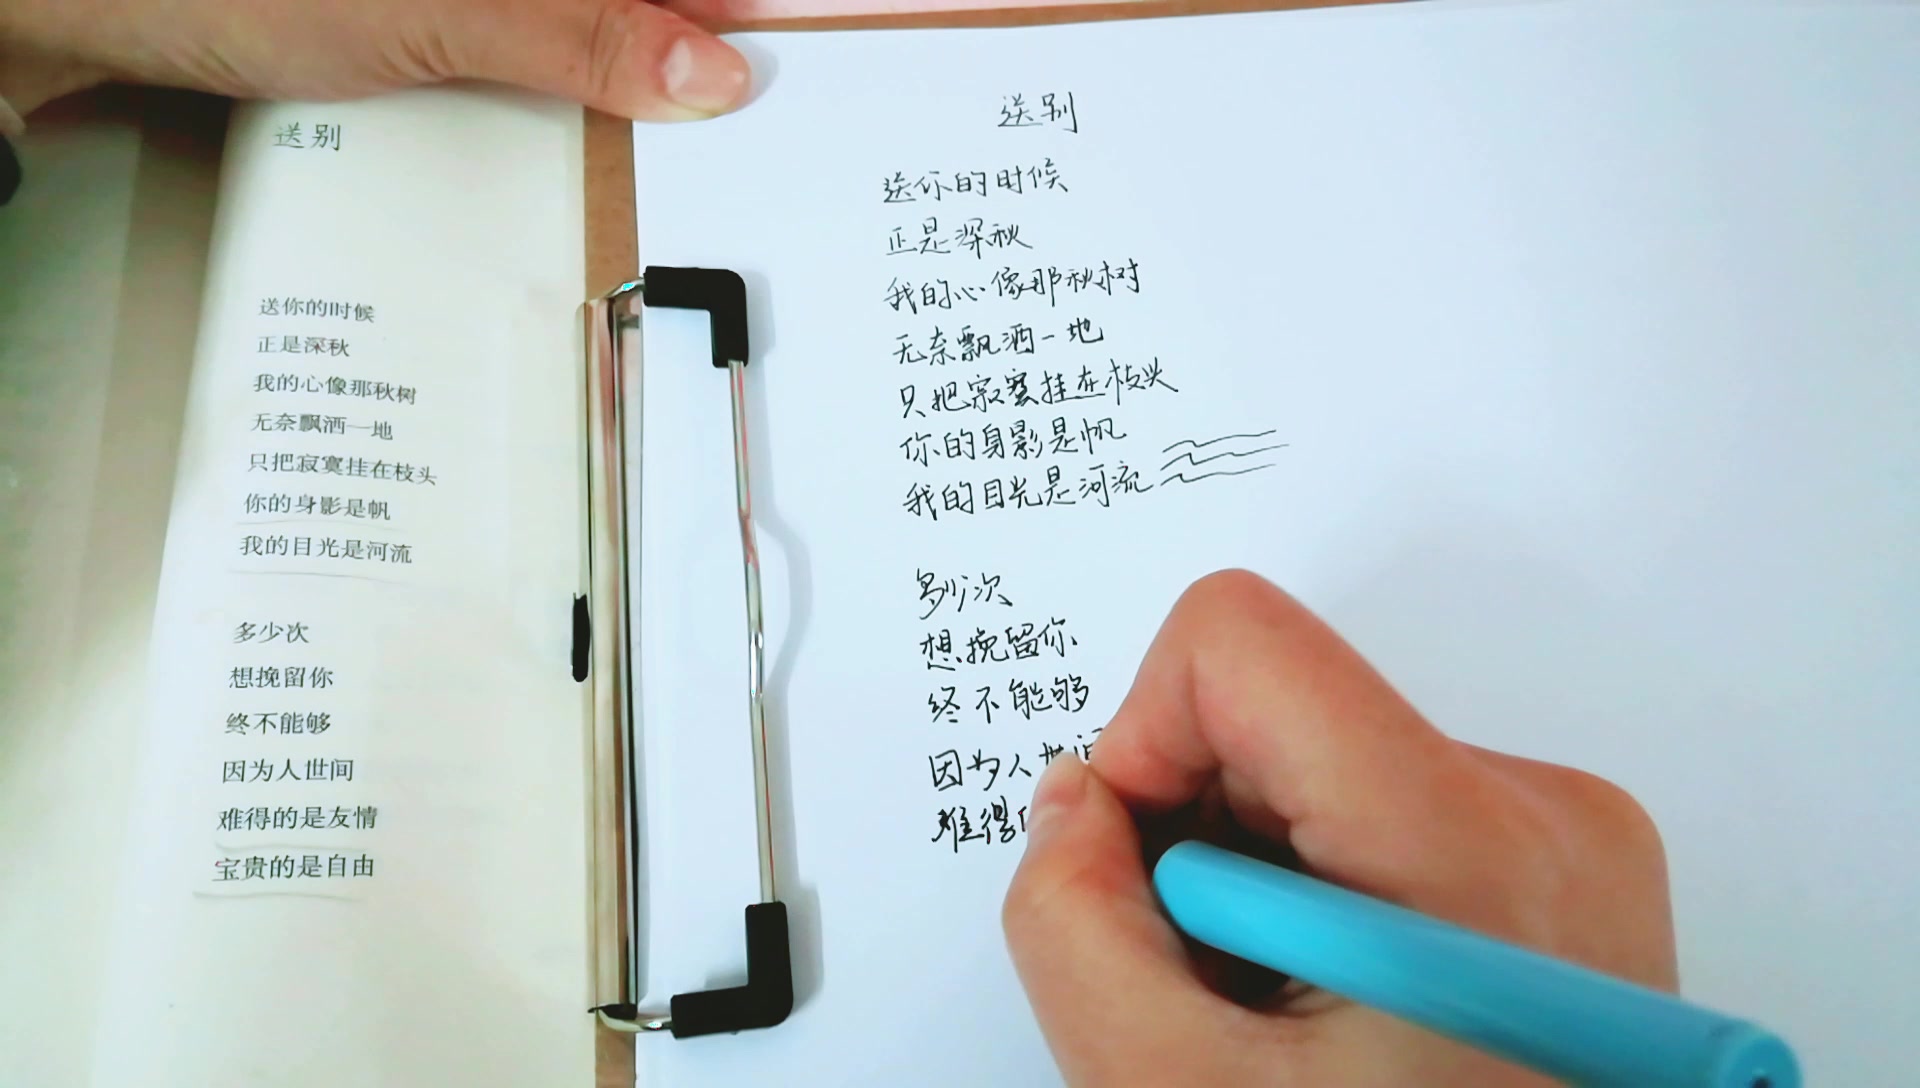 送别
送你的时候
正是深秋
我的心像那秋树
无奈飘洒一地
只把寂寞挂在枝头
你的身影是帆
我的目光是河流
多少次
想挽留你
终不能够
因为人世间
难得的是友情
宝贵的是自由
送别
送你的时候
正是深秋
我的心像那秋树
无奈飘洒一地
只把寂寞挂在枝头
你的身影是帆
我的目光是河流
多少次
想挽留你
终不能够
因为人世间
难得